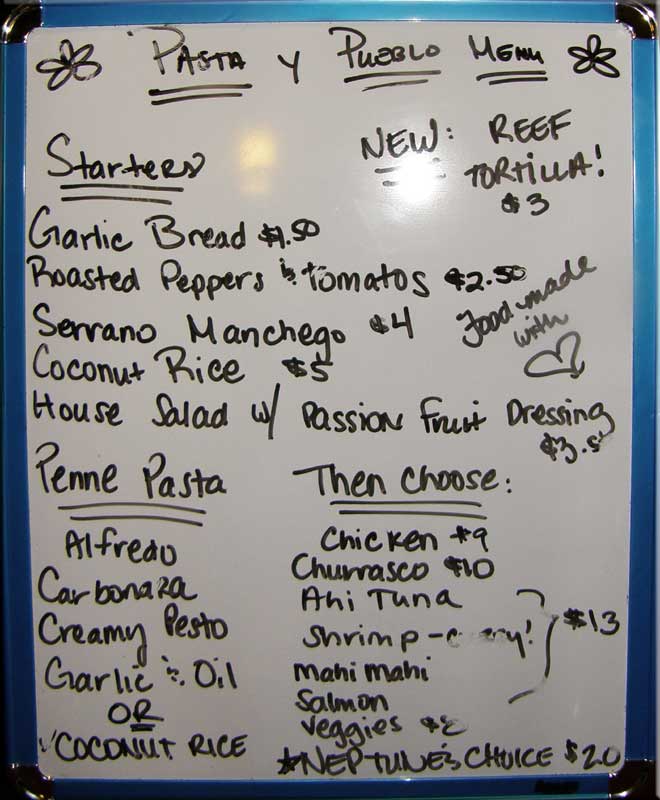 PASTA y PUEBLO MENU
NEW: REEF
TORTILLA!
$3
Starters
Garlic Bread $1.50
Roasted Peppers & Tomatos $2.50
Serrano Manchego $4
Coconut Rice $5
Food made
with
House Salad w/ Passion Fruit Dressing
$3.5
Penne Pasta
Alfredo
Carbonara
Creamy Pesto
Garlic & Oil
OR
COCONUT RICE
Then Choose:
Chicken $9
Churrasco $10
Ahi Tuna
Shrimp
Mahi Mahi
Salmon
$13
Veggies
*NEPTUNE'S CHOICE $20